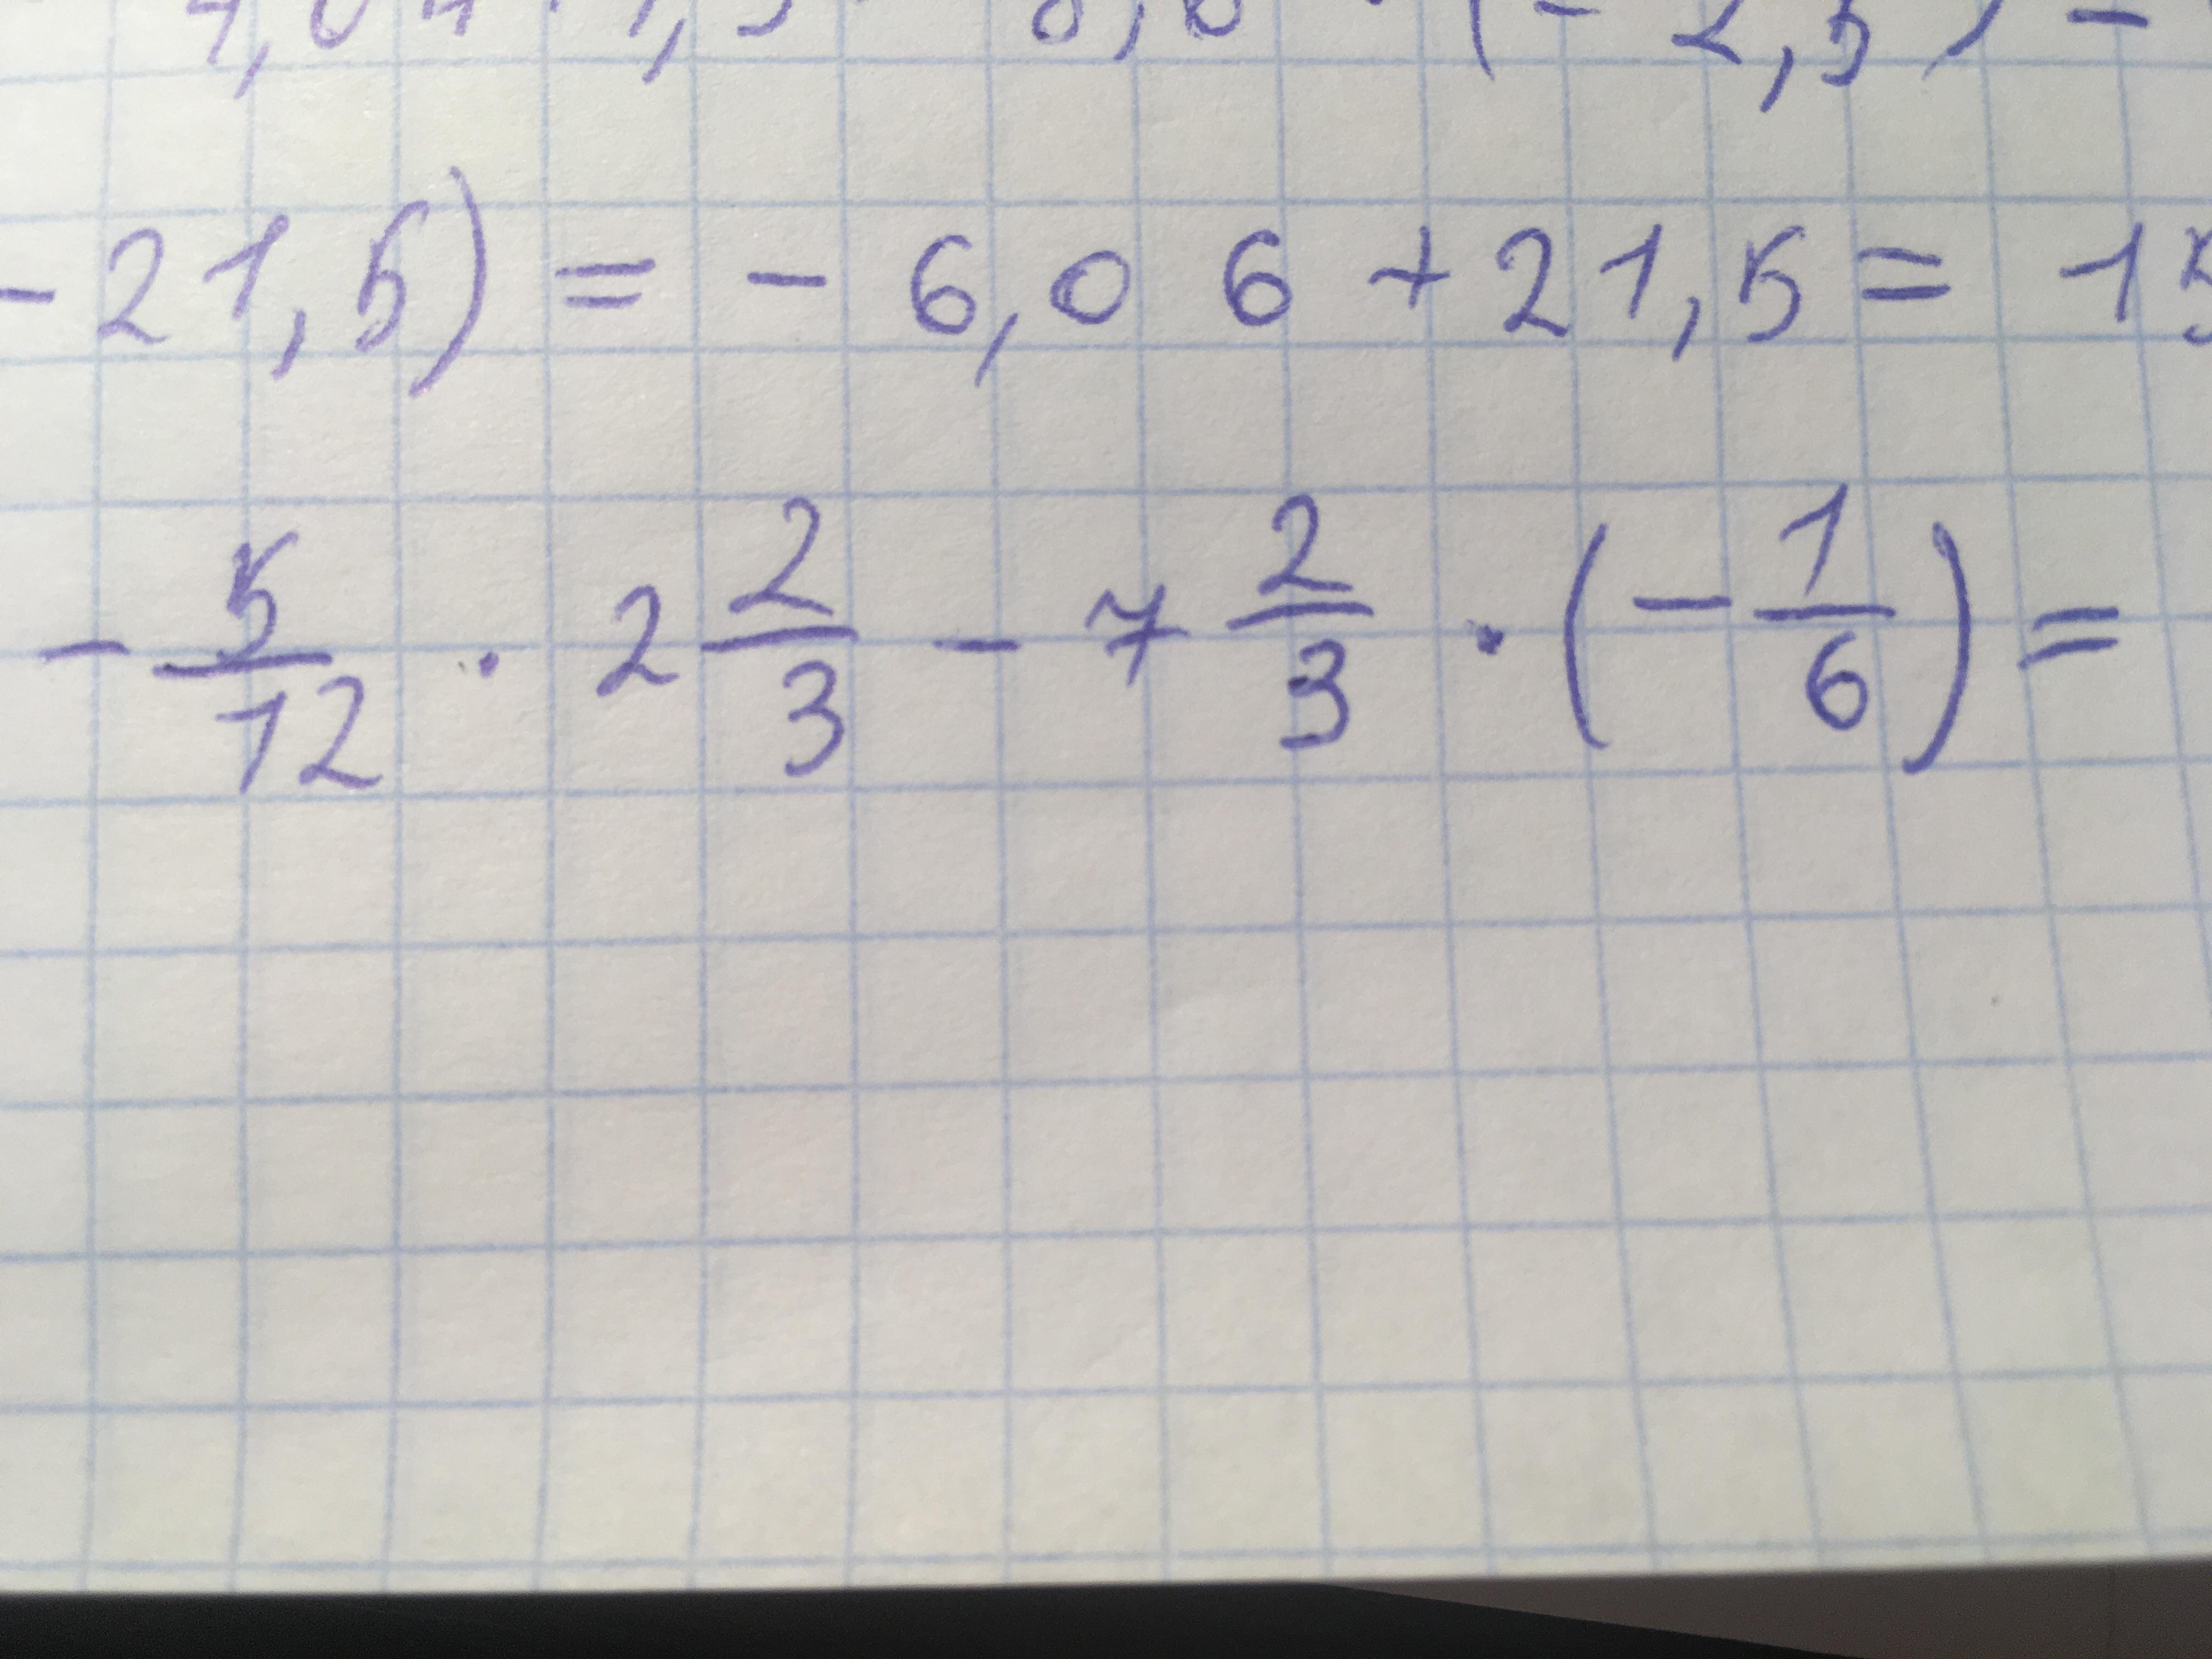 (- 2,5) -
- 21,5) = - 6,06 + 21,5 = 15
- 5/12 · 2 2/3 - 7 2/3 · (- 1/6) =